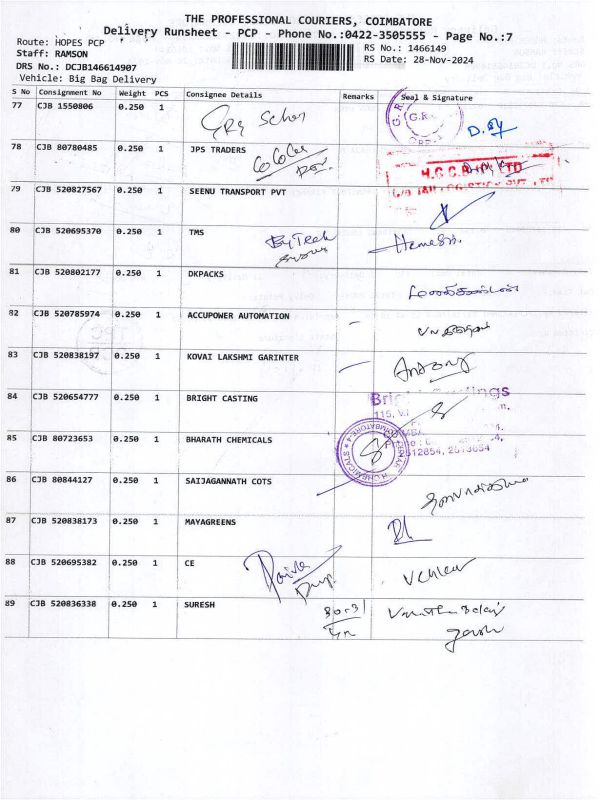 THE PROFESSIONAL COURIERS, COIMBATORE
Delivery Runsheet - PCP - Phone No.:0422-3505555 - Page No.:7
Route: HOPES PCP
RS No.: 1466149
Staff: RAMSON
RS Date: 28-Nov-2024
DRS No.: DCJB146614907
Vehicle: Big Bag Delivery
S No Consignment No Weight PCS Consignee Details Remarks Seal & Signature
77 CJB 1550806 0.250 1
G.R.
D.
78 CJB 80780485 0.250 1 JPS TRADERS
79 CJB 520827567 0.250 1 SEENU TRANSPORT PVT
80 CJB 520695370 0.250 1 TMS
ByTech
81 CJB 520802177 0.250 1 DKPACKS
மணிகண்டன்
82 CJB 520785974 0.250 1 ACCUPOWER AUTOMATION
83 CJB 520838197 0.250 1 KOVAI LAKSHMI GARINTER
Antony
84 CJB 520654777 0.250 1 BRIGHT CASTING
115,
85 CJB 80723653 0.250 1 BHARATH CHEMICALS
86 CJB 80844127 0.250 1 SAIJAGANNATH COTS
87 CJB 520838173 0.250 1 MAYAGREENS
88 CJB 520695382 0.250 1 CE
89 CJB 520836338 0.250 1 SURESH